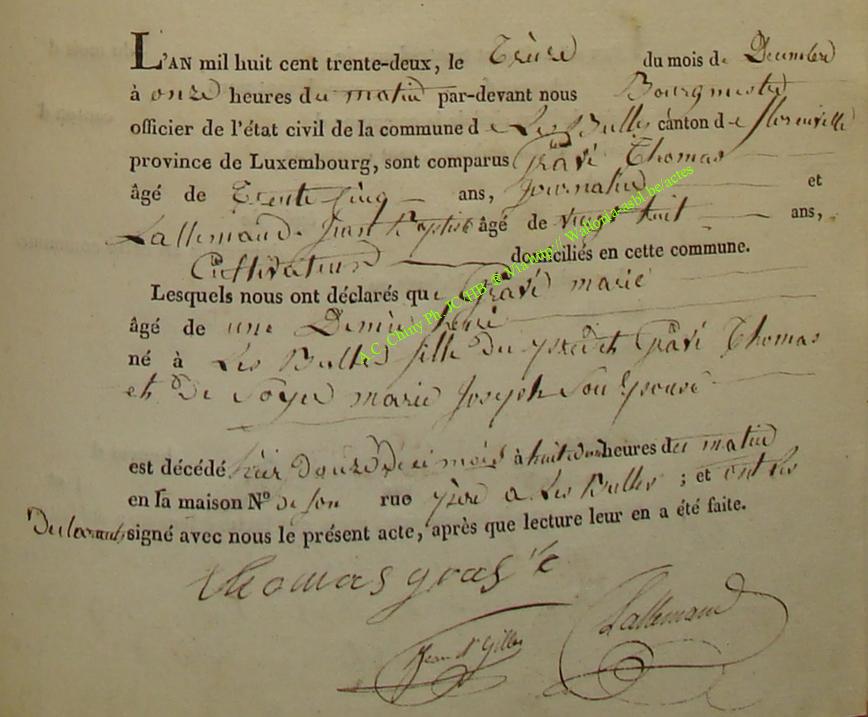 L'AN mil huit cent trente-deux, le Treize du mois de Decembre
à onze heures du matin par-devant nous Bourgmestre
officier de l'état civil de la commune de Les Bulles canton de florenville
province de Luxembourg, sont comparus Grâsé Thomas
âgé de Trente Cinq ans, Journalier et
Lallemand Jean Baptiste âgé de vingt huit ans,
Cultivateur domiciliés en cette commune.
Lesquels nous ont déclarés que Grâsé marie
âgé de une Demie heure
né à Les Bulles fille du predit Grâsé Thomas
et De marie Joseph Son Epouse
est décédé hier Douze De ce mois à huit heures du matin
en la maison N° de son rue père a Les Bulles ; et ont les
Declarants signé avec nous le présent acte, après que lecture leur en a été faite.
thomas grasé
Lallemand
Jean d Gilles
A.C. Chiny Ph. JC HB © Via http:// Wallonia-asbl.be/actes